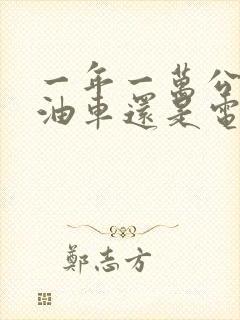 一年一萬公
油車還是電
鄭志方